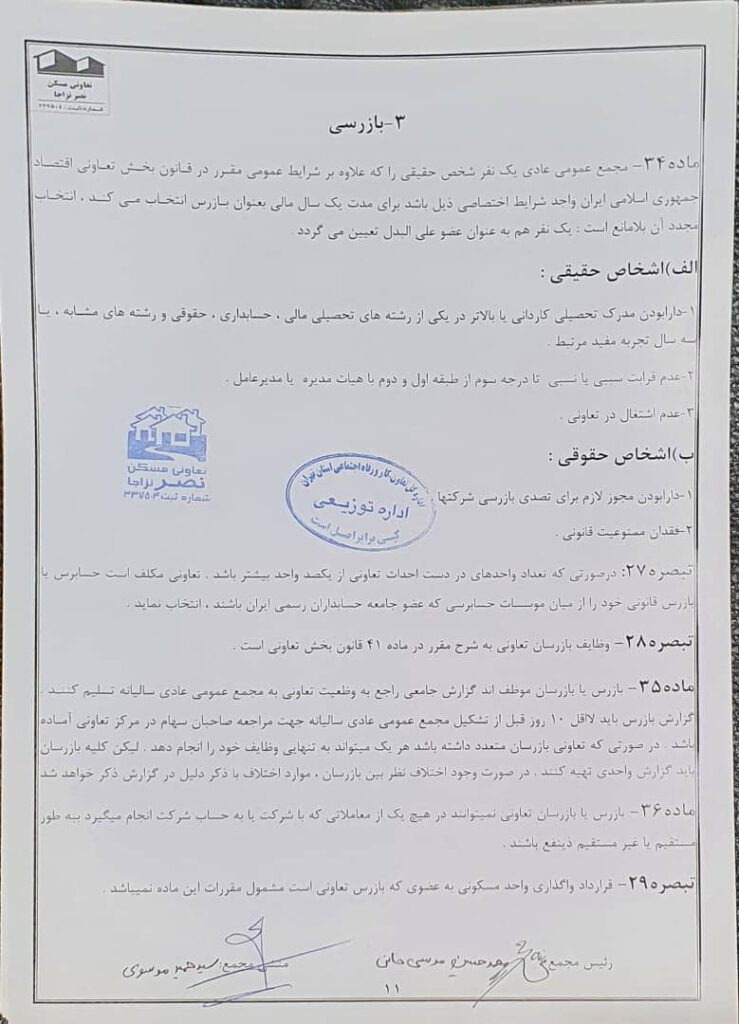 تعاونی مسکن
نصر نزاجا
شماره ثبت : ۳۳۷۵۰۴
۳-بازرسی
ماده۳۴- مجمع عمومی عادی یک نفر شخص حقیقی را که علاوه بر شرایط عمومی مقرر در قانون بخش تعاونی اقتصاد
جمهوری اسلامی ایران واجد شرایط اختصاصی ذیل باشد برای مدت یک سال مالی بعنوان بازرس انتخاب می کند ، انتخاب
مجدد آن بلامانع است : یک نفر هم به عنوان عضو علی البدل تعیین می گردد .
الف)اشخاص حقیقی :
۱-دارابودن مدرک تحصیلی کاردانی یا بالاتر در یکی از رشته های تحصیلی مالی ، حسابداری ، حقوقی و رشته های مشابه ، یا
سه سال تجربه مفید مرتبط .
۲-عدم قرابت سببی یا نسبی تا درجه سوم از طبقه اول و دوم با هیات مدیره یا مدیرعامل .
۳-عدم اشتغال در تعاونی .
ب)اشخاص حقوقی :
۱-دارابودن مجوز لازم برای تصدی بازرسی شرکتها
۲-فقدان ممنوعیت قانونی .
تعاونی مسکن
نصر نزاجا
شماره ثبت ۳۳۷۵۰۴
اداره کل تعاون کار و رفاه اجتماعی استان تهران
اداره توزیعی
کپی برابر اصل است
تبصره۲۷: درصورتی که تعداد واحدهای در دست احداث تعاونی از یکصد واحد بیشتر باشد . تعاونی مکلف است حسابرس یا
بازرس قانونی خود را از میان موسسات حسابرسی که عضو جامعه حسابداران رسمی ایران باشند ، انتخاب نماید .
تبصره۲۸- وظایف بازرسان تعاونی به شرح مقرر در ماده ۴۱ قانون بخش تعاونی است .
ماده۳۵- بازرس یا بازرسان موظف اند گزارش جامعی راجع به وظعیت تعاونی به مجمع عمومی عادی سالیانه تسلیم کنند .
گزارش بازرس باید لااقل ۱۰ روز قبل از تشکیل مجمع عمومی عادی سالیانه جهت مراجعه صاحبان سهام در مرکز تعاونی آماده
باشد . در صورتی که تعاونی بازرسان متعدد داشته باشد هر یک میتواند به تنهایی وظایف خود را انجام دهد . لیکن کلیه بازرسان
باید گزارش واحدی تهیه کنند . در صورت وجود اختلاف نظر بین بازرسان ، موارد اختلاف با ذکر دلیل در گزارش ذکر خواهد شد
ماده۳۶- بازرس یا بازرسان تعاونی نمیتوانند در هیچ یک از معاملاتی که با شرکت یا به حساب شرکت انجام میگیرد به طور
مستقیم یا غیر مستقیم ذینفع باشند .
تبصره۲۹- قرارداد واگذاری واحد مسکونی به عضوی که بازرس تعاونی است مشمول مقررات این ماده نمیباشد .
رئیس مجمع
منشی مجمع: سید حمید موسوی
۱۱